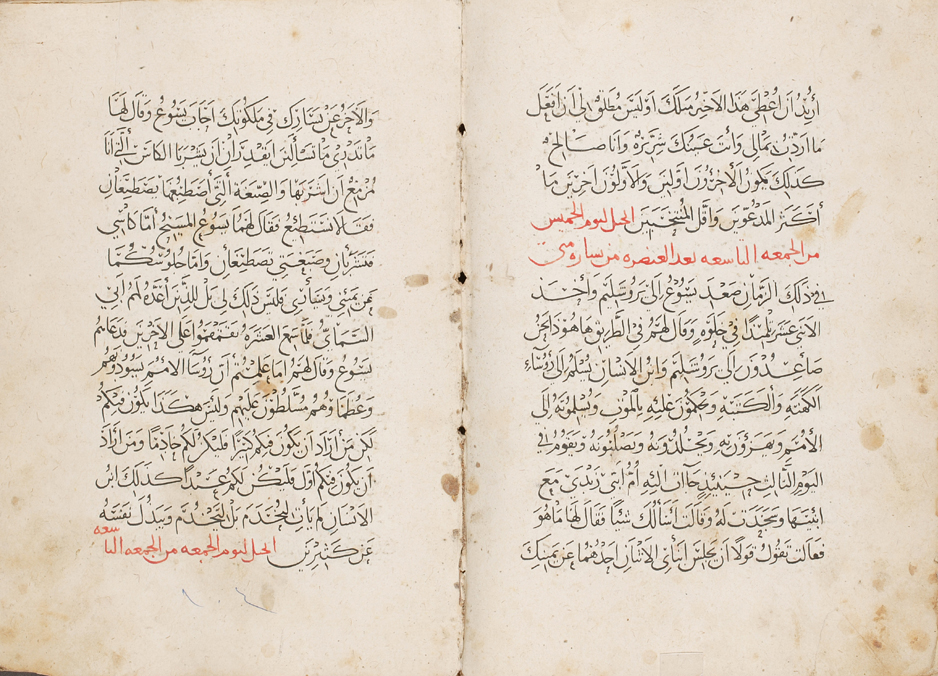 أريد ان أعطى هذا الاخير مثلك اوليس مطلق لي أن أفعل
ما اردت بمالى وانت عينك شريرة وانا صالح
كذلك يكون الاخرون اولين والاولون آخرين ما
أكثر المدعوين واقل المنتخبين انجيل ليوم الخميس
من الجمعه التاسعه بعد العنصره من بشاره متى
في ذلك الزمان صعد يسوع إلى يروشليم وأخذ
الاثنى عشر تلميذا في خلوه وقال لهم في الطريق ها هوذا نحن
صاعدون إلى يروشليم وابن الانسان يسلم إلى رؤساء
الكهنة والكتبة ويحكمون عليه بالموت ويسلمونه إلى
الأمم ويهزؤون به ويجلدونه ويصلبونه ويقوم في
اليوم الثالث حينيذ جاءت اليه أم ابني زبدي مع
ابنيها وسجدت له وقالت أسألك شيئا فقال لها ما هو
فقالت تقول قولا أن يجلس ابناي الاثنان احدهما عن يمينك
والآخر عن يسارك في ملكوتك اجاب يسوع وقال لهما
ما تدري ما تسألين ايقدران أن يشربا الكاس التي انا
مزمع أن اشربها والصبغة التي أصطبغها يصطبغان
فقالا نستطيع فقال لهما يسوع المسيح اما كاسي
فتشربان وصبغتي تصطبغان واما جلوسكما
عن يميني ويساري فليس ذلك لي بل للذين أعده لهم ابي
السماى فلما سمع العشرة تقمقموا على الاخرين فدعاهم
يسوع وقال لهم اما علمتم أن روسا الامم يسودونهم
وعظماؤهم مسلطون عليهم وليس هكذا يكون فيكم
لكن من أراد ان يكون فيكم كبيرا فليكن لكم خادما ومن أراد
ان يكون فيكم اول فليكن لكم عبدا كذلك ابن
الانسان لم يأت ليخدم بل ليخدم ويبذل نفسه
عن كثيرين انجيل ليوم الجمعه من الجمعه التاسعه